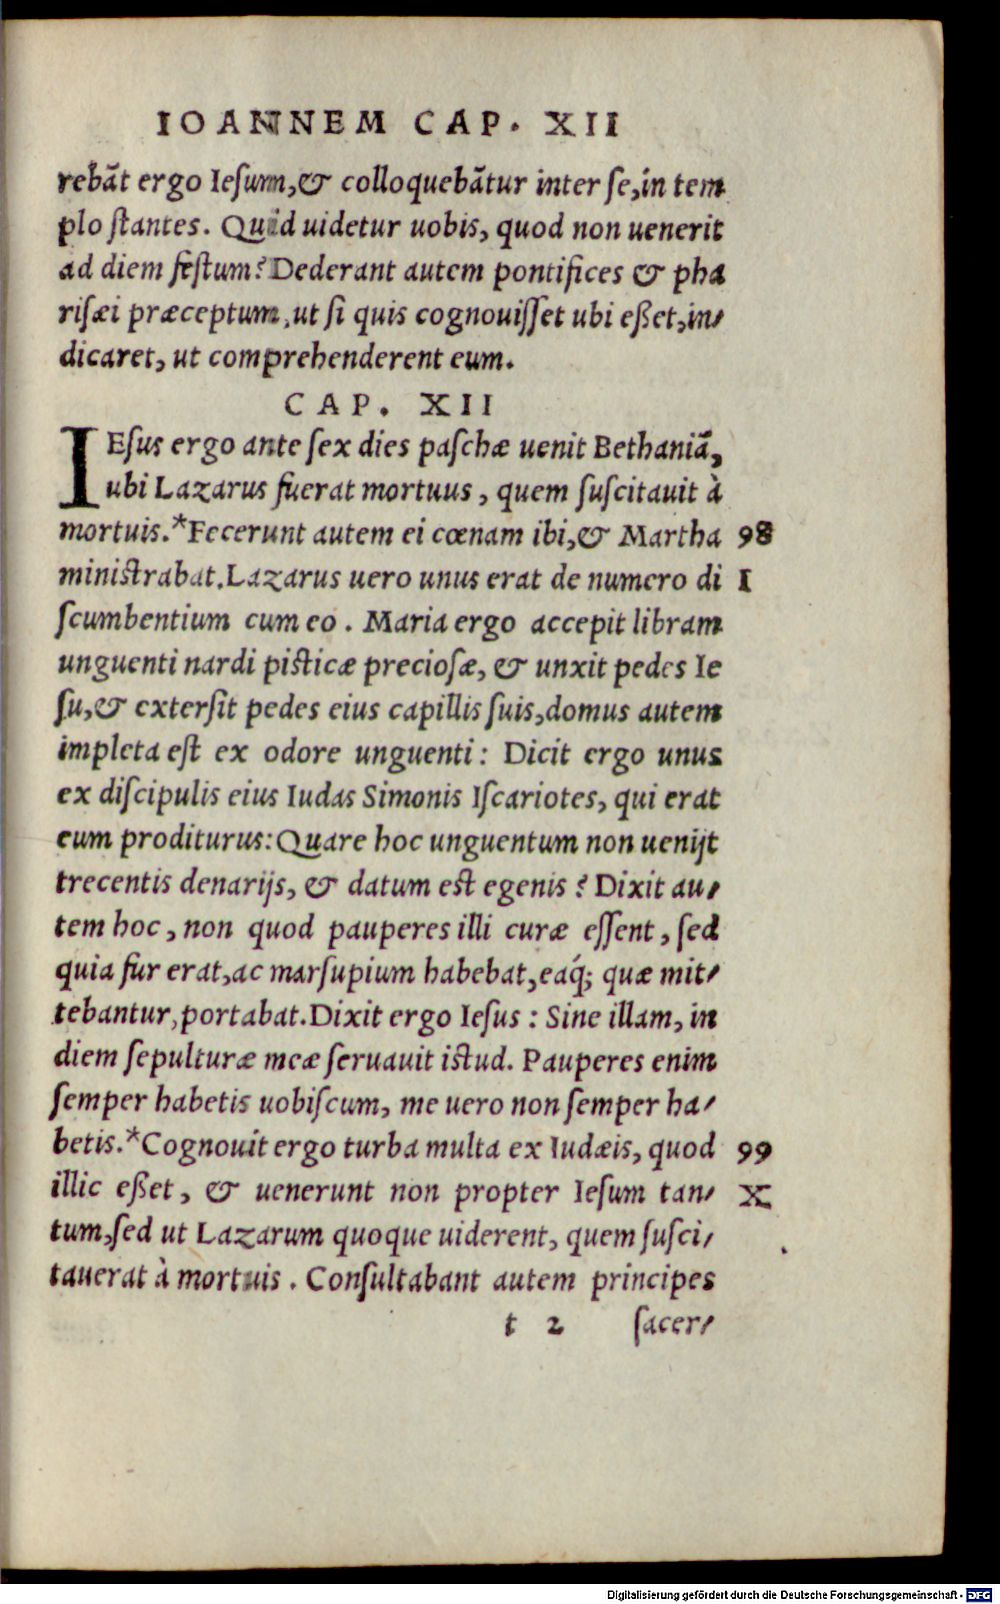 IOANNEM CAP. XII
rebãt ergo Ieſum,& colloquebãtur inter ſe,in tem
plo ſtantes. Quid uidetur uobis, quod non uenerit
ad diem feſtum? Dederant autem pontifices & pha
riſæi præceptum,ut ſi quis cognouiſſet ubi eßet,in⸗
dicaret, ut comprehenderent eum.
CAP. XII
IEſus ergo ante ſex dies paſchæ uenit Bethaniã,
ubi Lazarus fuerat mortuus, quem ſuſcitauit à
mortuis.*Fecerunt autem ei cœnam ibi,& Martha 98
miniſtrabat.Lazarus uero unus erat de numero di I
ſcumbentium cum eo. Maria ergo accepit libram
unguenti nardi piſticæ precioſæ, & unxit pedes Ie
ſu,& exterſit pedes eius capillis ſuis,domus autem
impleta eſt ex odore unguenti: Dicit ergo unus
ex diſcipulis eius Iudas Simonis Iſcariotes, qui erat
eum proditurus: Quare hoc unguentum non uenijt
trecentis denarijs, & datum est egenis? Dixit au⸗
tem hoc, non quod pauperes illi curæ eſſent, ſed
quia fur erat,ac marſupium habebat,eaq́; quæ mit⸗
tebantur,portabat.Dixit ergo Ieſus: Sine illam, in
diem ſepulturæ meæ ſeruauit iſtud. Pauperes enim
ſemper habetis uobiſcum, me uero non ſemper ha⸗
betis.*Cognouit ergo turba multa ex Iudæis, quod 99
illic eßet, & uenerunt non propter Ieſum tan⸗ X
tum,ſed ut Lazarum quoque uiderent, quem ſuſci⸗
tauerat à mortuis. Conſultabant autem principes
t 2 ſacer⸗
Digitalisierung gefördert durch die Deutsche Forschungsgemeinschaft - DFG